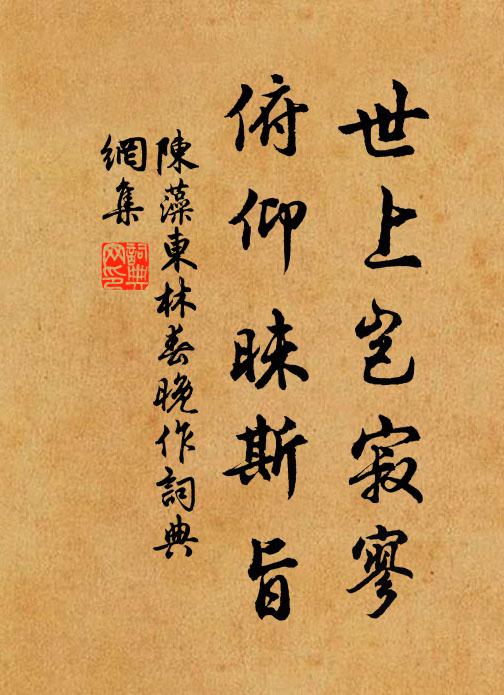 世上岂寂寥
俯仰昧斯旨
陳藻東林春晚作詞典
網集
詞典网印